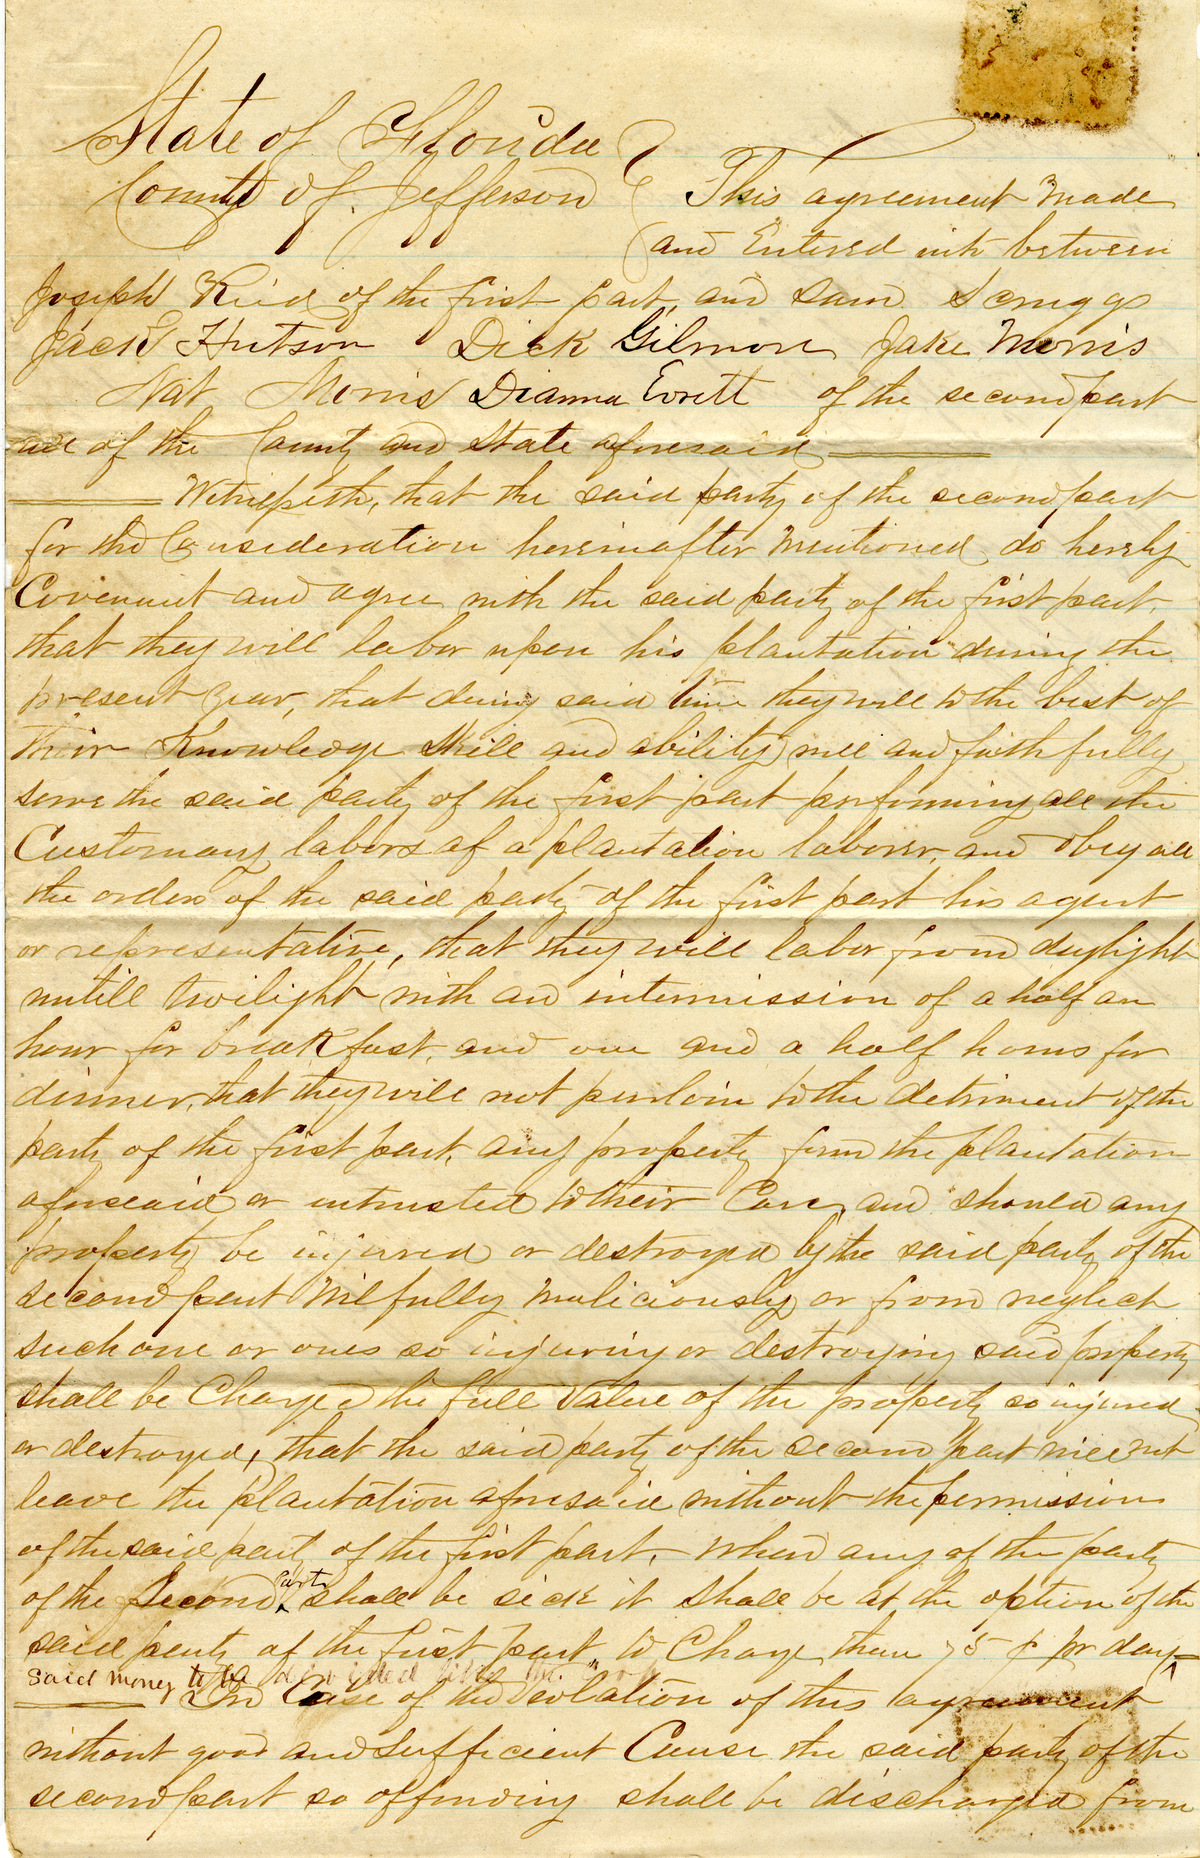 State of Florida
County of Jefferson This agreement made
and Entered into between
Joseph Reid of the first part, and Sam Scruggs
Jack Hutson Dick Gilmore Jake Morris
Nat Morris Dianna Evrett of the second part
all of the County and State aforesaid
Witnesseth, that the said party of the second part
for the Consideration hereinafter mentioned do hereby
Covenant and agree with the said party of the first part,
that they will labor upon his plantation during the
present year, that during said time they will to the best of
their Knowledge Skill and ability well and faithfully
serve the said party of the first part performing all the
Customary labors of a plantation laborer, and obey all
the orders of the said party of the first part his agent
or representative, that they will labor from daylight
untill twilight with an intermission of a half an
hour for breakfast, and one and a half hours for
dinner, that they will not purloin to the detriment of the
party of the first part, any property from the plantation
aforesaid or intrusted to their Care, and should any
property be injured or destroyed by the said party of the
second part Wilfully Maliciously or from neglect
such one or ones so injuring or destroying said property
shall be Charged the full Value of the property so injured
or destroyed, that the said party of the second part will not
leave the plantation aforesaid without the permission
of the said party of the first part. When any of the party
of the Second part shall be sick it shall be at the option of the
said party of the first part to Charge them 75 ¢ pr day
Said money to be divided
In Case of the violation of this agreement
without good and sufficient Cause the said party of the
second part so offending shall be discharged from